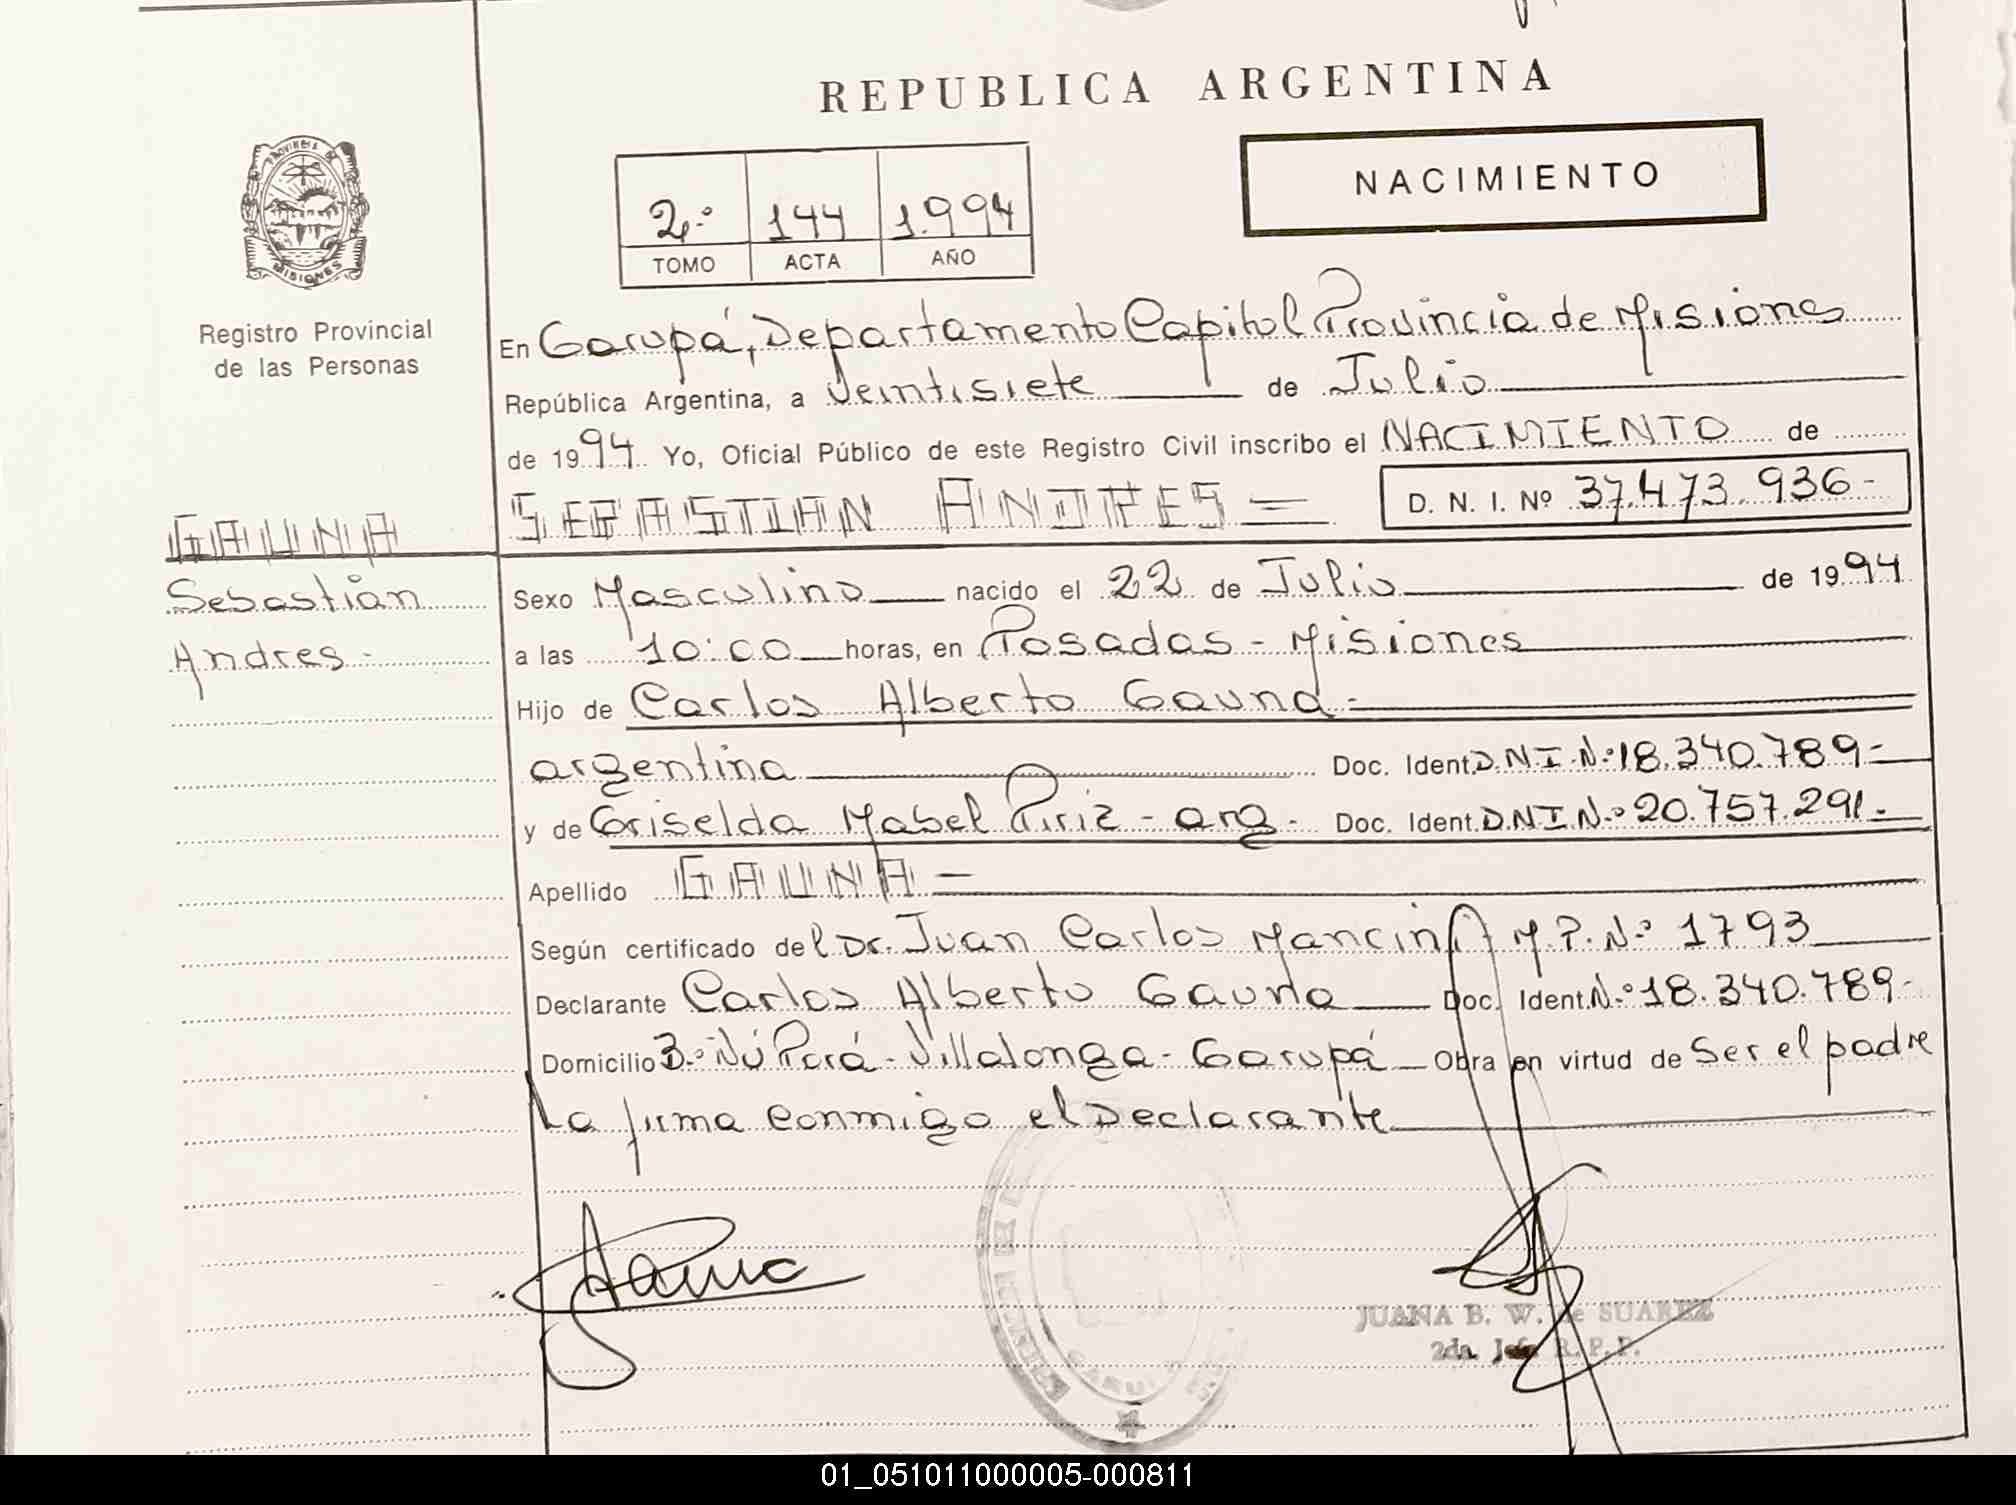 REPUBLICA ARGENTINA
NACIMIENTO
2º 144 1.994
TOMO ACTA AÑO
PROVINCIA DE
MISIONES
Registro Provincial
de las Personas
En Garupá, Departamento Capital Provincia de Misiones
República Argentina, a Veintisiete de Julio
de 1994 Yo, Oficial Público de este Registro Civil inscribo el NACIMIENTO de
SEBASTIAN ANDRES = D. N. I. Nº 37.473.936-
GAUNA
Sebastián
Andres-
Sexo Masculino nacido el 22 de Julio de 1994
a las 10:00 horas, en Posadas - Misiones
Hijo de Carlos Alberto Gauna-
argentina Doc. Ident. D.N.I.Nº 18.340.789-
y de Griselda Mabel Piriz - arg- Doc. Ident. D.N.I.N.º 20.757.291.-
Apellido GAUNA -
Según certificado del Dr. Juan Carlos Mancini M.P.Nº 1793
Declarante Carlos Alberto Gauna Doc. Ident. N.º 18.340.789-
Domicilio Bº Ñú Porá - Villalonga - Garupá Obra en virtud de Ser el padre
La firma conmigo el Declarante
JUANA B. W. de SUAREZ
2da. Jefe R.P.P.
GARUPA
01_051011000005-000811